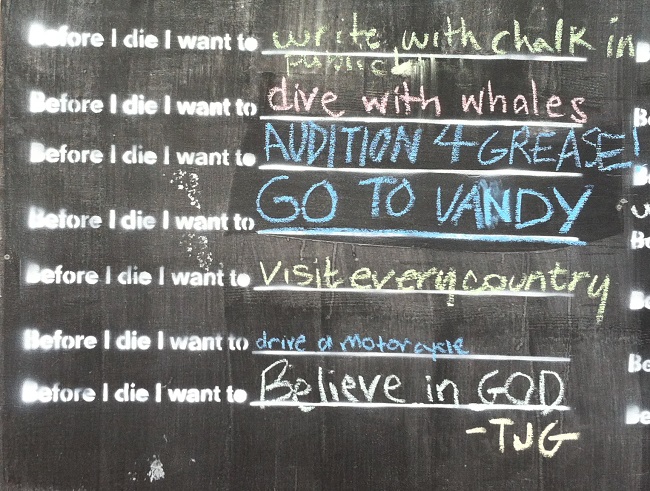 Before I die I want to write with chalk in
public!
Before I die I want to dive with whales
Before I die I want to AUDITION 4 GREASE!
Before I die I want to GO TO VANDY
Before I die I want to visit every country
Before I die I want to drive a motorcycle
Before I die I want to Believe in GOD
-TJG